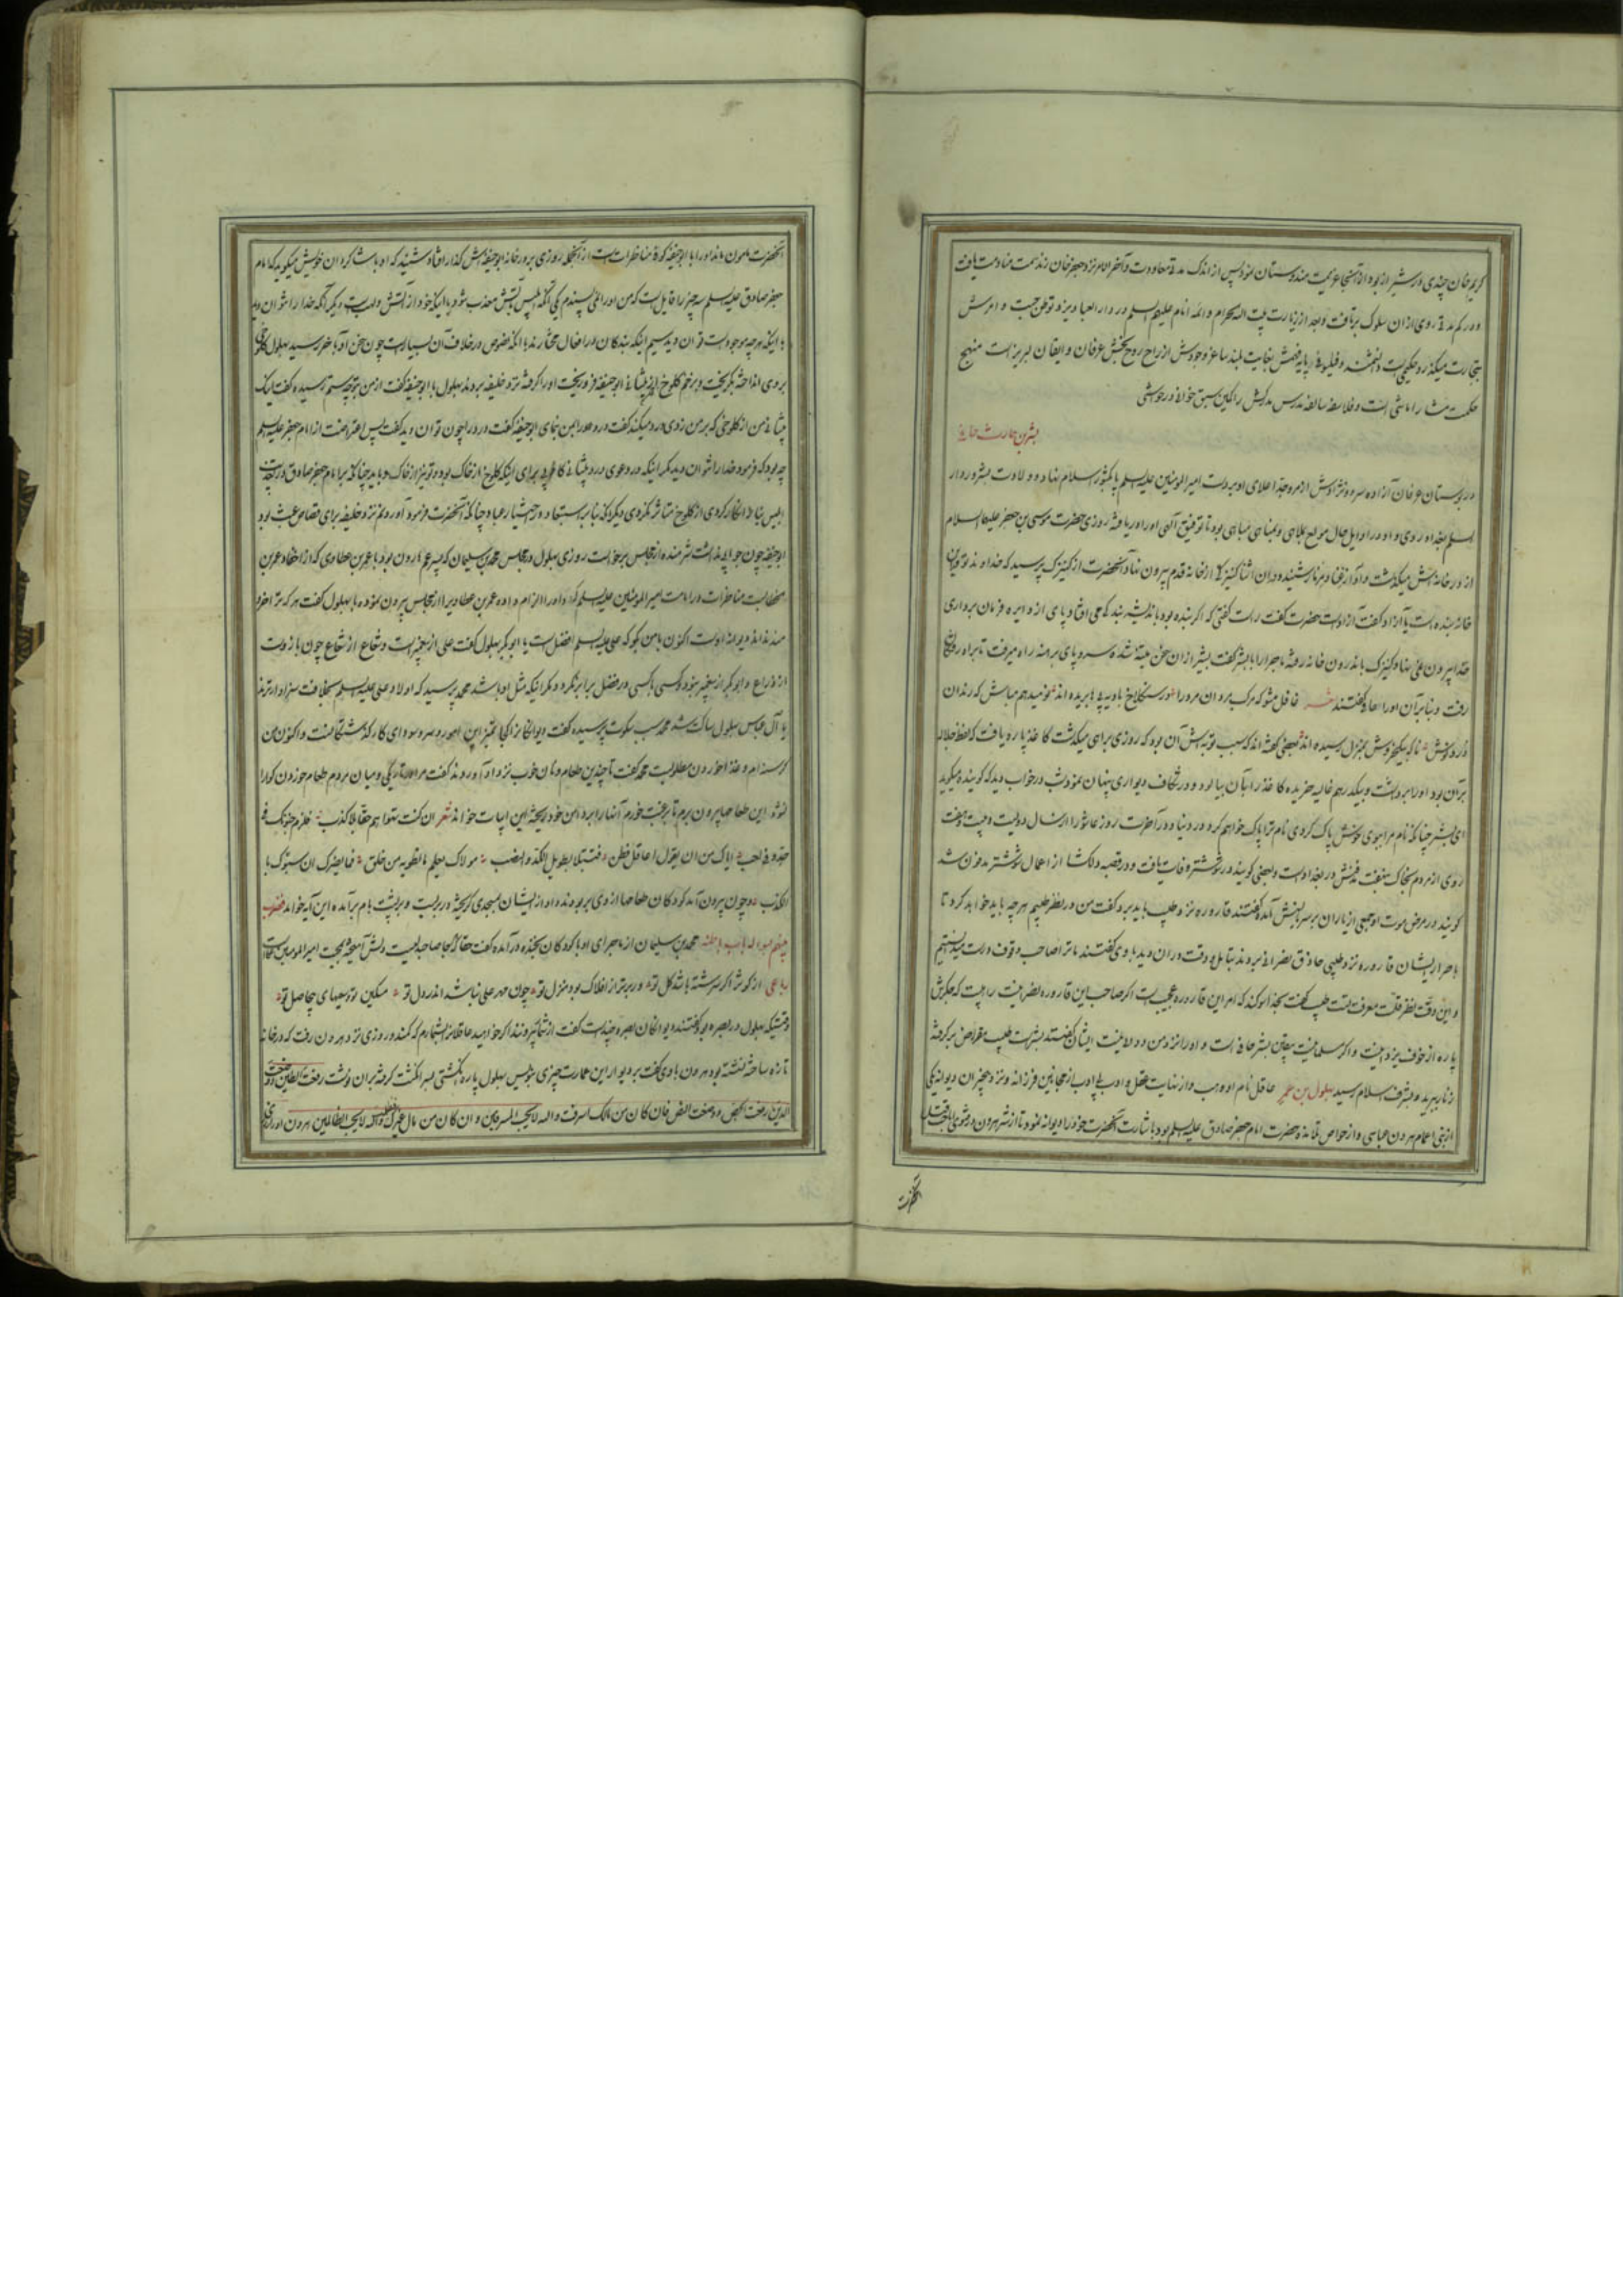 کریم خان چندی در شیراز بود از آنجا عزیمت هندوستان نمود پس از اندک مدتی معاودت و آخر الامر نزد جعفر خان زند سمت منادمت یافت
و در کم مدتی روی از ان سلوک برتافت و بعد از زیارت بیت الله الحرام و ائمه انام علیهم السلم در دار العباد یزد توطن جست و امرش
بتجارت میگذرد حکیمیست دانشمند و فیلسوفی پایه فهمش بغایت بلند ساغر وجودش از راح روح بخش عرفان و ایقان لبریز است منهج
حکمت مشا را ماشی است و فلاسفه سالفه مدرس مدرکش را کمین سبق خوانی در حواشی
بشر بن حارث حافی
در بوستان عرفان آزاده سرو نژادش از مرو جد اعلای او بر دست امیر المومنین علیه السلم پا بکشور اسلام نهاد و ولادت بشر در دار
السلم بغداد روی داد در اوایل حال مولع بملاهی و بمناهی مباهی بود تا توفیق الهی او را دریافته روزی حضرت موسی بن جعفر علیها السلام
از در خانه اش میگذشت و آواز غنا و مزمار شنیده در ان اثنا کنیزکی از خانه قدم بیرون نهاد آنحضرت از کنیزک پرسید که خداوند تو این
خانه بنده است یا آزاد گفت آزاد است حضرت گفت راست گفتی که اگر بنده بود باندیشه بندکی افتاد پای از دایره فرمان برداری
خدا بیرون نمی نهاد کنیزک باندرون خانه رفته ماجرا را با بشر گفت بشر از ان سخن متنبه شده سر و پای برهنه راه میرفت تا براه روان
رفت و بنا بر آن او را حافی گفتند شعر غافل مشو که مرکب مردان مرد را در سنکلاخ بادیه پی ها بریده اند نومید هم مباش که رندان
درد نوش ناکه بیکخروش بمنزل رسیده اند بعضی گفته اند که سبب توبه اش آن بود که روزی براهی میگذشت کاغذ پاره یافت که لفظ جلاله
بر آن بود او را برداشت و بیکدرهم غالیه خریده کاغذ را بآن بیالود و در شکاف دیواری پنهان نمود شب در خواب دید که گوینده میگوید
ای بشر چنانکه نام مرا ببوی خوش پاک کردی نام ترا پاک خواهم کرد در دنیا و در آخرت روز عاشورا از سال دویست و بیست و هفت
روی از مردم بخاک نهفت مدفنش در بغداد است و بعضی گویند در شوشتر وفات یافت و در قصبه دلکشا از اعمال شوشتر مدفون شد
گویند در مرض موت او جمعی از یاران بر سر بالینش آمده گفتند قاروره نزد طبیب باید برد گفت من در نظر طبیبم هر چه باید خواهد کرد تا
باصرار ایشان قاروره نزد طبیبی حاذق نصرانی بردند بتامل و دقت در ان دید با وی گفتند ما ترا صاحب وقوف درست میدانستیم
و این دقت نظر قلت معرفت تست طبیب گفت بخدا سوگند که امر این قاروره عجیب است اگر صاحب این قاروره نصرانیست راهبیست که جگرش
پاره از خوف یزدانیست و اگر مسلمانیست بیقین بشر حافی است و او را نزد من دوا نیست ایشان گفتند بشر است طبیب مقراض بر گرفته
زنار ببرید و بشرف اسلام رسید بهلول بن عمر عاقل نام او وهب و از نهایت عقل و ادب بی ادب از مجانین فرزانه و نزد بیخبران دیوانه یکی
از بنی اعمام هرون عباسی و از خواص تلامذه حضرت امام جعفر صادق علیه السلم بود باشارت آنحضرت خود را دیوانه نمود تا از شر هرون و فتوی
آنحضرت
آنحضرت مامون ماند او را با ابو حنیفه کوفی مناظراتست از آنجمله روزی بر در خانه ابو حنیفه اش گذار افتاد شنید که او با شاگردان خویش میگوید که امام
جعفر صادق علیه السلم سه چیز را قایل است که من او را نمی پسندم یکی آنکه ابلیس بآتش معذب شود با اینکه خود از آتش و لهب است دیگر آنکه خدا را نتوان دید
با اینکه هر چه موجود است توان دید سیم اینکه بندگان در افعال مختارند با آنکه نصوص در خلاف آن بسیارست چون سخن او بآخر رسید بهلول کلوخی
بر وی انداخته بگریخت و بزخم کلوخ از پیشانی ابو حنیفه خون فرو ریخت او را گرفته نزد خلیفه بردند بهلول با ابو حنیفه گفت از من بتو چه ستم رسیده گفت اینک
پیشانی من از کلوخی که بر من زدی درد میکند گفت درد را بمن نمای ابو حنیفه گفت درد را چون توان دید گفت پس اعتراضت از امام جعفر علیه السلم
چه بود که فرمود خدا را نتوان دید دیگر اینکه در دعوی درد پیشانی کاذبی برای اینکه کلوخ از خاک بود و تو نیز از خاک
ابلیس بنار انکار کردی از کلوخ متاثر نگردی
ابو حنیفه چون جوابی نداشت شرمنده از مجلس برخواست روزی بهلول در مجلس محمد بن سلیمان که پسر عم هارون بود با عمر بن عطاوی که از احفاد عمر بن
خطابست مناظرات در امامت امیر المومنین علیه السلم کرد و او را الزام داده عمر بن عطا ویرا از مجلس بیرون نموده با بهلول گفت هر که ترا خردمند
نداند دیوانه اوست اکنون با من بگو که علی علیه السلم افضل است یا ابو بکر بهلول گفت علی از پیغمبر است و شعاع از شعاع چون بازوست
از ذراع و ابو بکر از پیغمبر نبود و کسی با کسی در فضل برابر نگردد مگر اینکه مثل او باشد محمد پرسید که اولاد علی علیه السلم بخلافت سزاوارترند
یا آل عباس بهلول ساکت شد محمد سبب سکوت پرسیده گفت دیوانگانرا کجا تمیز این امور
گرسنه ام و غذا خوردن مطلوبست محمد گفت تا چندین طعام و نان خوب نزد او آوردند گفت
نشود این طعامها بیرون برم تا برغبت خورم آنها را بر دامن خود ریخته این ابیات خواند شعر ان کنت تهواهم حقا بلا کذب فالزم جنونک فی
جد و فی لعب ایاک من ان یقول ا عاقل فطن فتبتلی بطویل الکد و النصب مولاک یعلم ما تطویه من خلق فما یضرک ان سبوک بالکذب
و چون بیرون آمد کودکان طعامها از وی بربودند و او از ایشان بمسجدی گریخته در ببست و بر پشت بام برآمده این آیه خواند فضرب
بینهم بسور له باب باطنه محمد بن سلیمان از ماجرای او با کودکان بخنده درآمده گفت حقا که
رباعی از کوثر اگر سرشته باشد گل تو ور برتر از افلاک بود منزل تو چون مهر علی نباشد اندر دل تو مسکین تو و سعیهای بیحاصل تو
وقتیکه بهلول در بصره بود گفتندش دیوانگان بصره چند است گفت از شماره بیرونند اگر خواهید عاقلانرا بشمارم که کمند و روزی نزد هرون رفت که در خانه
تازه ساخته نشسته بود هرون با وی گفت بر دیوار این عمارت چیزی بنویس بهلول پاره انگشتی بسر انگشت گرفته بر ان نوشت رفعت الطین و وضعت
الدین رفعت الجص و وضعت النص فان کان من مالک اسرفت و الله لا یحب المسرفین و ان کان من مال غیرک ظلمت و الله لا یحب الظالمین هرون او را